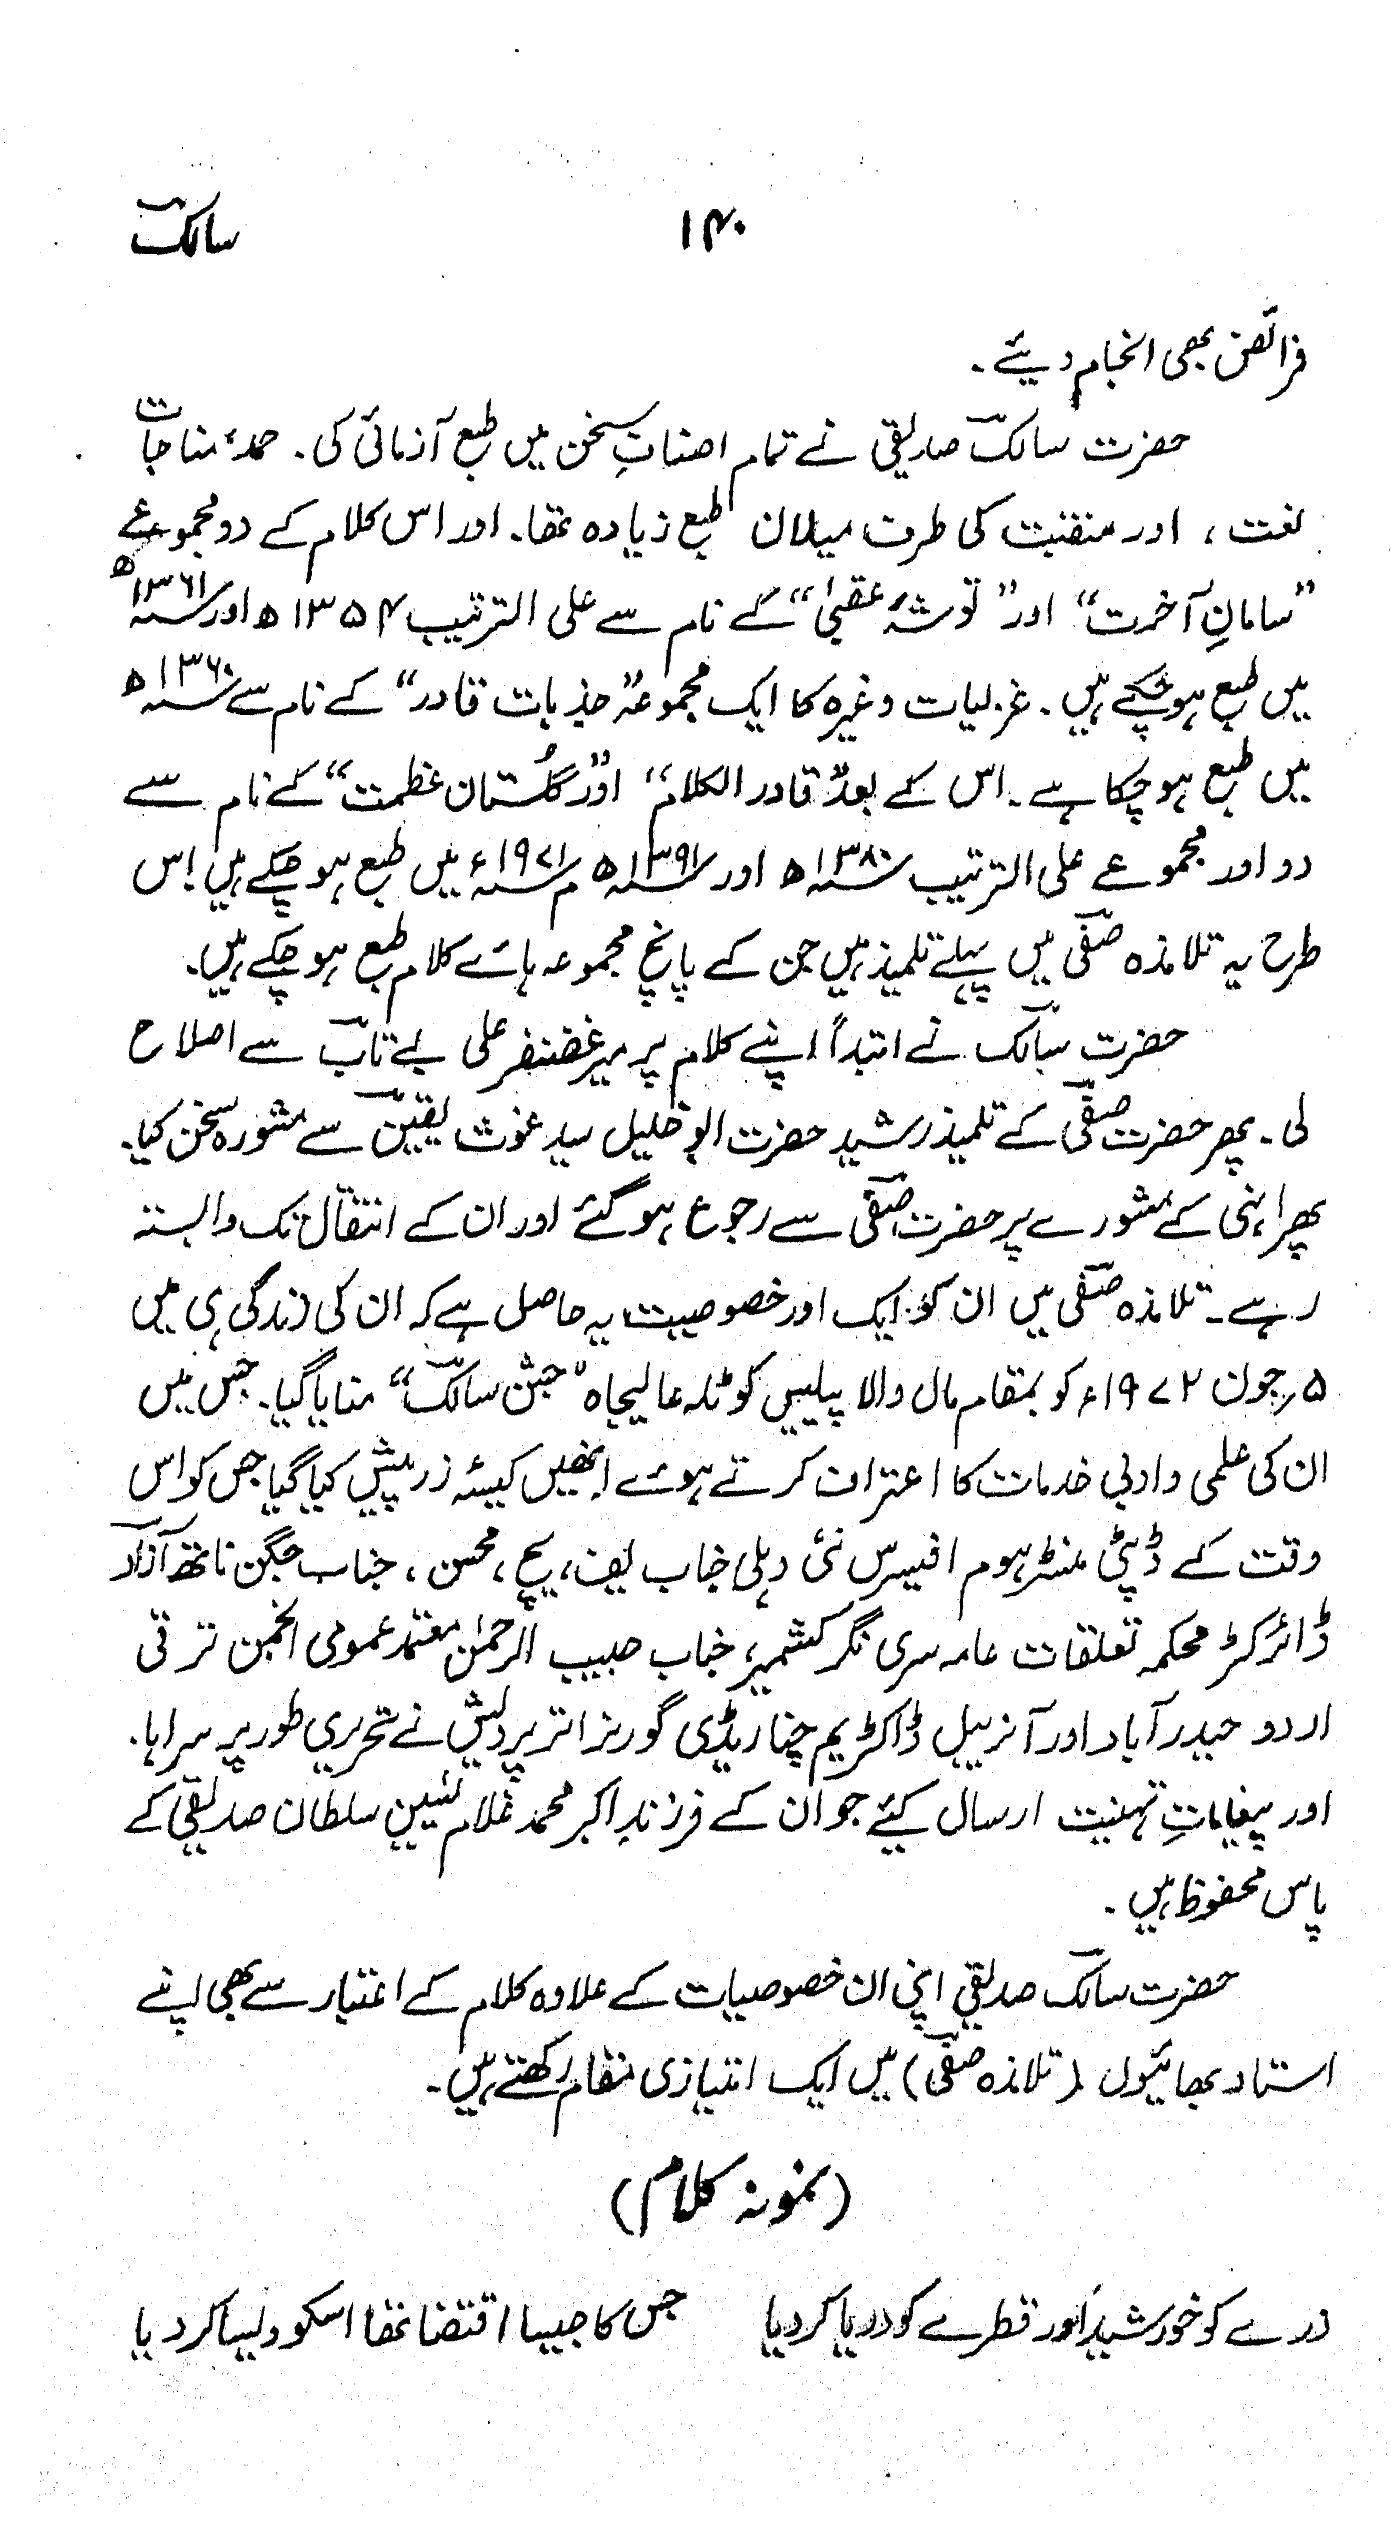 سالکؔ ۱۴۰
فرائض بھی انجام دیئے۔
حضرت سالکؔ صدیقی نے تمام اصنافِ سخن میں طبع آزمائی کی۔ حمد، مناجات
نعت، اور منقبت کی طرف میلان طبع زیادہ تھا۔ اور اس کلام کے دو مجموعے
”سامانِ آخرت“ اور ”توشۂ عقبیٰ“ کے نام سے علی الترتیب ۱۳۵۴ھ اور سنہ ۱۳۶۱ھ
میں طبع ہوچکے ہیں۔ غزلیات وغیرہ کا ایک مجموعہ ”جذبات قادر“ کے نام سے سنہ ۱۳۶۰ھ
میں طبع ہوچکا ہے۔ اس کے بعد ”قادر الکلام“ اور ”گلستان عظمت“ کے نام سے
دو اور مجموعے علی الترتیب سنہ ۱۳۸۰ھ اور سنہ ۱۳۹۱ھ م سنہ ۱۹۷۱ء میں طبع ہوچکے ہیں اِس
طرح یہ تلامذہ صفیؔ میں پہلے تلمیذ ہیں جن کے پانچ مجموعہ ہائے کلام طبع ہوچکے ہیں۔
حضرت سالکؔ نے ابتداً اپنے کلام پر میر غضنفر علی بے تابؔ سے اصلاح
لی۔ پھر حضرت صفیؔ کے تلمیذ رشید حضرت ابو خلیل سید غوث یقینؔ سے مشورہ سخن کیا۔
پھر انہی کے مشورے پر حضرت صفیؔ سے رجوع ہوگئے اور ان کے انتقال تک وابستہ
رہے۔ تلامذہ صفیؔ میں ان کو ایک اور خصوصیت یہ حاصل ہے کہ ان کی زندگی ہی میں
۵؍جون ۱۹۷۲ء کو بمقام مال والا پیلیس کوٹلہ عالیجاہ ”جشن سالکؔ“ منایا گیا۔ جس میں
ان کی علمی وادبی خدمات کا اعتراف کرتے ہوئے اِنھیں کیسۂ زر پیش کیا گیا جس کو اس
وقت کے ڈپٹی منسٹر ہوم افیرس نئی دہلی جناب یف، یچ، محسن، جناب جگن ناتھ آزادؔ
ڈائرکٹر محکمہ تعلقات عامہ سری نگر کشمیر، جناب حبیب الرحمٰن معتمد عمومی انجمن ترقی
اردو حیدرآباد اور آنریبل ڈاکٹر یم چنا ریڈی گورنر اترپردیش نے تحریری طور پر سراہا۔
اور پیغاماتِ تہنیت ارسال کیئے جو ان کے فرزندِ اکبر محمد غلام یٰسین سلطان صدیقی کے
پاس محفوظ ہیں۔
حضرت سالکؔ صدیقی اپنی ان خصوصیات کے علاوہ کلام کے اعتبار سے بھی اپنے
استاد بھائیوں (تلامذہ صفیؔ) میں ایک امتیازی مقام رکھتے ہیں۔
(نمونہ کلام)
ذرے کو خورشید اور قطرے کو دریا کردیا جس کا جیسا اقتضا تھا اسکو ویسا کردیا